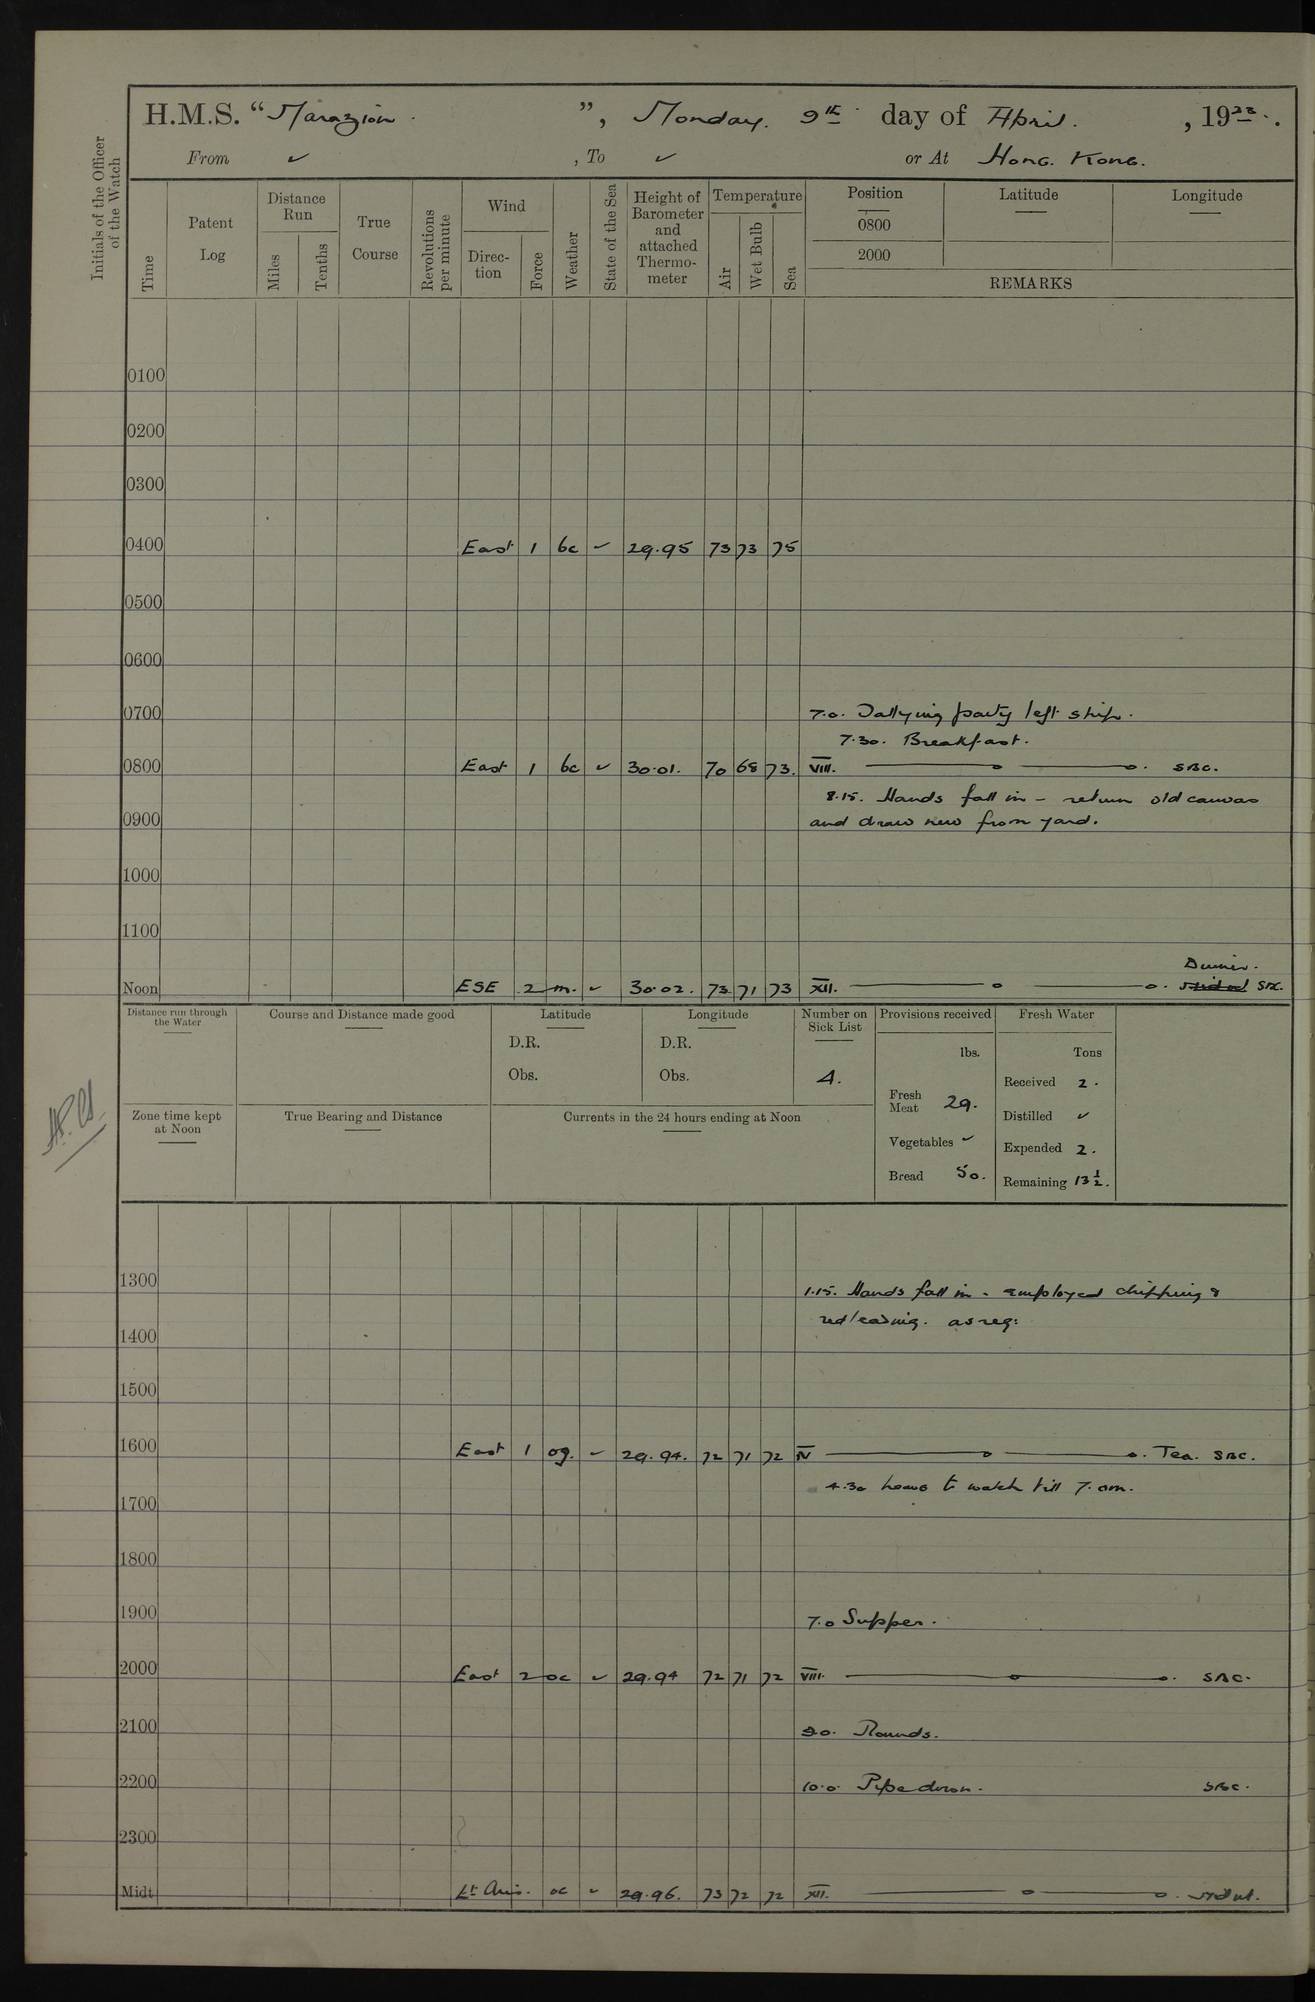 H.M.S. "Marazion.", Monday. 9th day of April, 1923.
From ✓, To ✓ or At Hong Kong.
Initials of the Officer of the Watch
Time
Patent Log
Distance Run
Miles
Tenths
True Course
Revolutions per minute
Wind
Direction
Force
Weather
State of the Sea
Height of Barometer and attached Thermometer
Temperature
Air
Wet Bulb
Sea
Position Latitude Longitude
0800
2000
REMARKS
0100
0200
0300
0400 East 1 bc ✓ 29.95 73 73 75
0500
0600
0700 7.0. party left ship.
7.30. Breakfast.
0800 East 1 bc ✓ 30.01. 70 68 73. VIII. SBC.
8.15. Hands fall in – return old canvas
0900 and draw new from yard.
1000
1100
Dinner.
Noon ESE 2 m. ✓ 30.02. 73 71 73 XII. SBC.
Distance run through the Water
Course and Distance made good
Latitude
D.R.
Obs.
Longitude
D.R.
Obs.
Number on Sick List
4.
Provisions received
lbs.
Fresh Meat 29.
Vegetables ✓
Bread 50.
Fresh Water
Tons
Received 2.
Distilled ✓
Expended 2.
Remaining 13½.
Zone time kept at Noon
True Bearing and Distance
Currents in the 24 hours ending at Noon
1300 1.15. Hands fall in – employed chipping &
redleading. as req:
1400
1500
1600 East 1 og. ✓ 29.94. 72 71 72 IV Tea. SBC.
4.30 hands to watch till 7. am.
1700
1800
1900 7.0 Supper.
2000 East 2 oc ✓ 29.94 72 71 72 VIII. SBC.
2100 9.0. Rounds.
2200 10.0. Pipe down. SBC.
2300
Midt Lt Airs. oc ✓ 29.96. 73 72 72 XII.